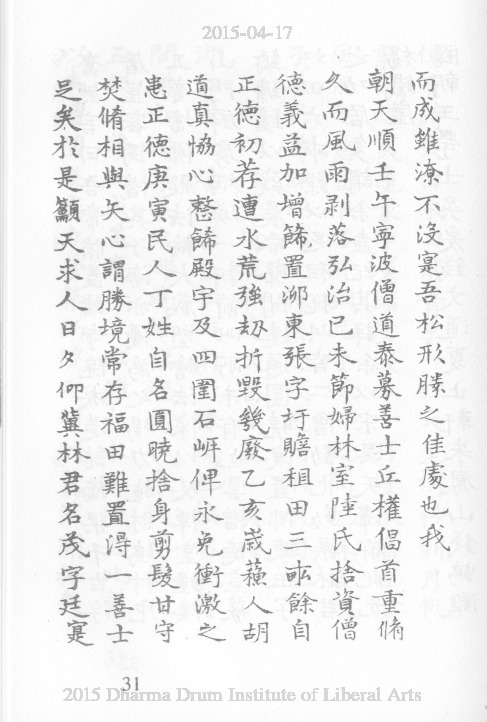 2015-04-17
而成錐潦不沒寔吾松形勝之佳處也我
朝天順壬午寧波僧道泰募善士丘權倡首重脩
久而風雨剥落弘治已未節婦林室陸氏捨資僧
德義益加增篩置泖東張字圩贍租田三畝餘自
正德初荐遭水荒強刼折毀幾廢乙亥歲蘋人胡
道真恊心整篩殿宇及四圍石岸俾永免衝激之
患正德庚寅民人丁姓自名圓曉捨身剪髮甘守
焚脩相與矢心謂勝境常存福田難置淂一善士
足矣於是籲天求人日夕仰冀林君名茂字廷寔
31
2015 Dharma Drum Institute of Liberal Arts